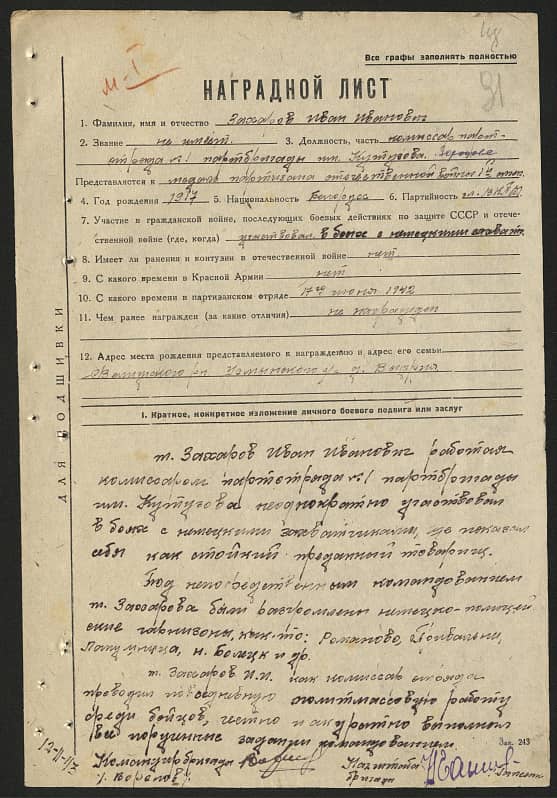 Все графы заполнять полностью
91
М-I
НАГРАДНОЙ ЛИСТ
1. Фамилия, имя и отчество Захаров Иван Иванович
2. Звание не имеет. 3. Должность, часть комиссар парт-
отряда №1 партбригады им. Кутузова.
Представляется к медали партизана отечественной войны
4. Год рождения 1917 5. Национальность Белорус 6. Партийность
7. Участие в гражданской войне, последующих боевых действиях по защите СССР и отече-
ственной войне (где, когда) участвовал в боях с немецкими
8. Имеет ли ранения и контузии в отечественной войне нет
9. С какого времени в Красной Армии нет
10. С какого времени в партизанском отряде 17го июня 1942
11. Чем ранее награжден (за какие отличия) не награжден
12. Адрес места рождения представляемого к награждению и адрес его семьи
д.
ДЛЯ ПОДШИВКИ
I. Краткое, конкретное изложение личного боевого подвига или заслуг
т. Захаров Иван Иванович работая
комиссаром партотряда №1 партбригады
им. Кутузова неоднократно участвовал
в боях с немецкими захватчиками, где показал
себя как стойкий преданный товарищ.
Под непосредственным командованием
т. Захарова были разгромлены немецко-полицей
ские гарнизоны, как-то: Романово,
и др.
т. Захаров И.И. как комиссар отряда
проводил повседневную политмассовую работу
среди бойцов, честно и акуратно выполнял
все порученные задания командованием.
Зак. 243
Командир бригады
Нач.штаба
бригады